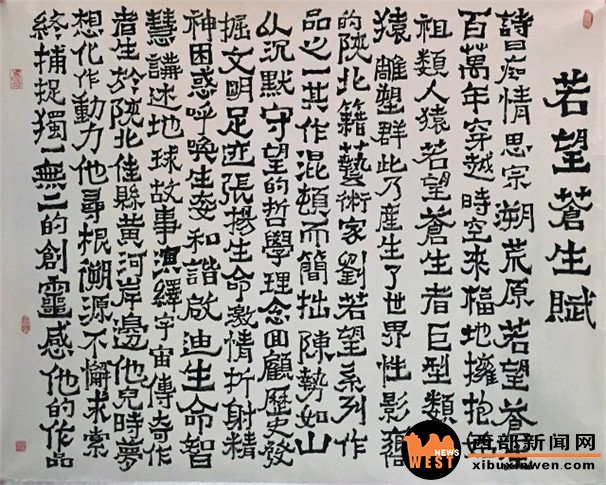 若望蒼生賦
詩曰痴情思宗溯荒原若望蒼
百萬年穿越時空来福地擁抱
祖類人猿若望蒼生者巨型類
猿雕塑群此乃産生了世界性影響
的陝北籍藝術家劉若望系列作
品之一其作混頓而簡拙陳勢如山
从沉默守望的哲學理念回顧歷史發
掘文明足迹張揚生命激情折射精
神困惑呼喚生态和諧啟迪生命智
慧講述地球故事演繹宇宙傳奇作
者生於陝北佳縣黄河岸邊他兒時夢
想化作動力他尋根溯源不懈求索
終捕捉獨一無二的創靈感他的作品
NEWS
WEST
西部新闻网
xibuxinwen.com